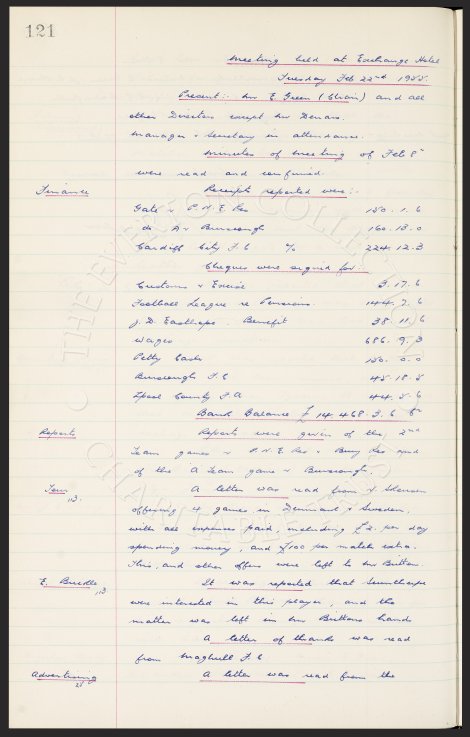 121
Meeting held at Exchange Hotel
Tuesday Feb 22nd 1955.
Present:- Mr E. Green (Chair) and all
other Directors except Mr Denaro.
Manager & Secretary in attendance.
Minutes of meeting of Feb 8th
were read and confirmed.
Finance
Receipts reported were:-
Gate v P.N.E Res 150. 1. 6
do A v Burscough 160. 13. 0
Cardiff City F.C % 224. 12. 3
Cheques were signed for:-
Customs & Excise 3. 17. 6
Football League re Pensions. 144. 7. 6
J. D. Easthope. Benefit 38. 11. 6
Wages 686. 9. 3
Petty Cash 150. 0. 0
Burscough F.C 45. 18. 5
Lpool County F.A 44. 5. 6
Bank Balance £ 14,468. 3. 6 Cr
Reports
Reports were given of the 2nd
Team games v P.N.E Res & Bury Res and
of the A Team game v Burscough.
Tour
A letter was read from
offering 4 games in Denmark & Sweden,
with all expenses paid, including £2. per day
spending money, and £100 per match extra.
This, and other offers were left to Mr Britton.
E. Buckle
It was reported that Scunthorpe
were interested in this player, and the
matter was left in Mr Brittons hands
A letter of thanks was read
from Maghull F.C
Advertising
A letter was read from the
THE EVERTON COLLECTION
CHARITABLE TRUST